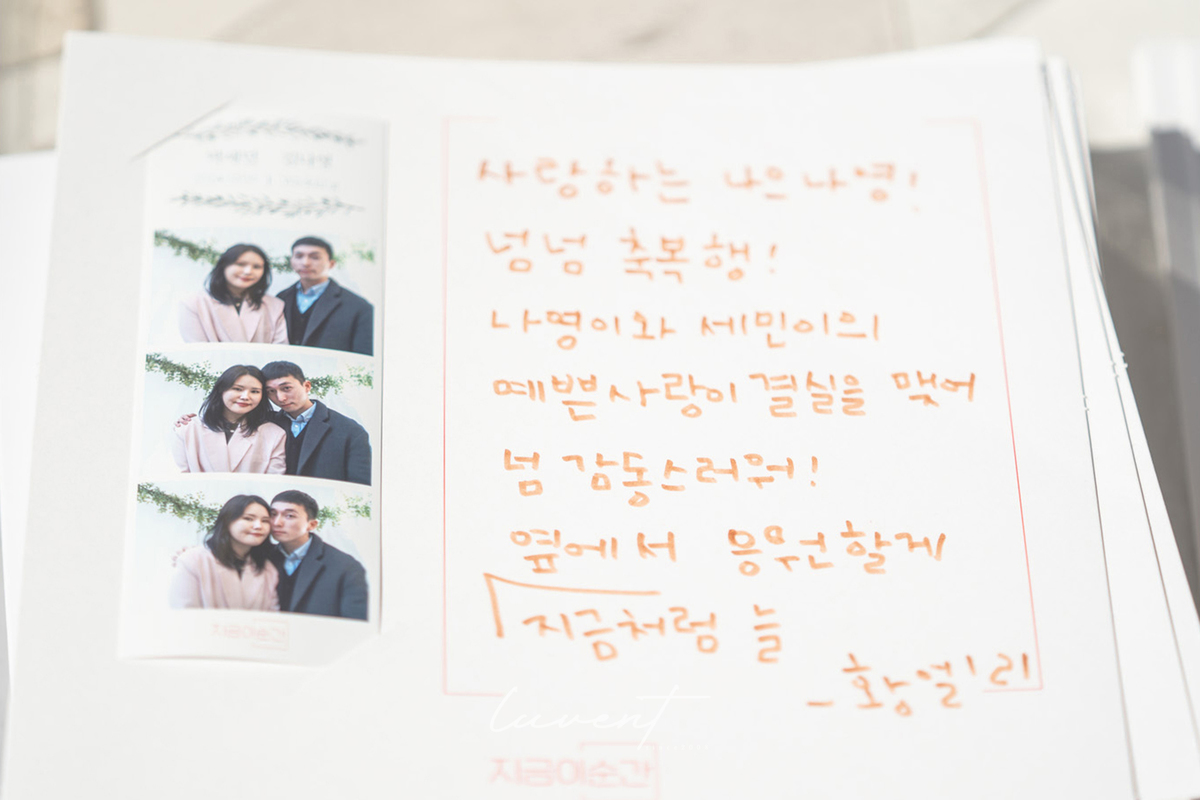 지금이순간
사랑하는 나으나영!
넘넘 축복행!
나영이와 세민이의
예쁜사랑이 결실을 맺어
넘 감동스러워!
옆에서 응원할게
지금처럼 늘
luvent
지금이순간